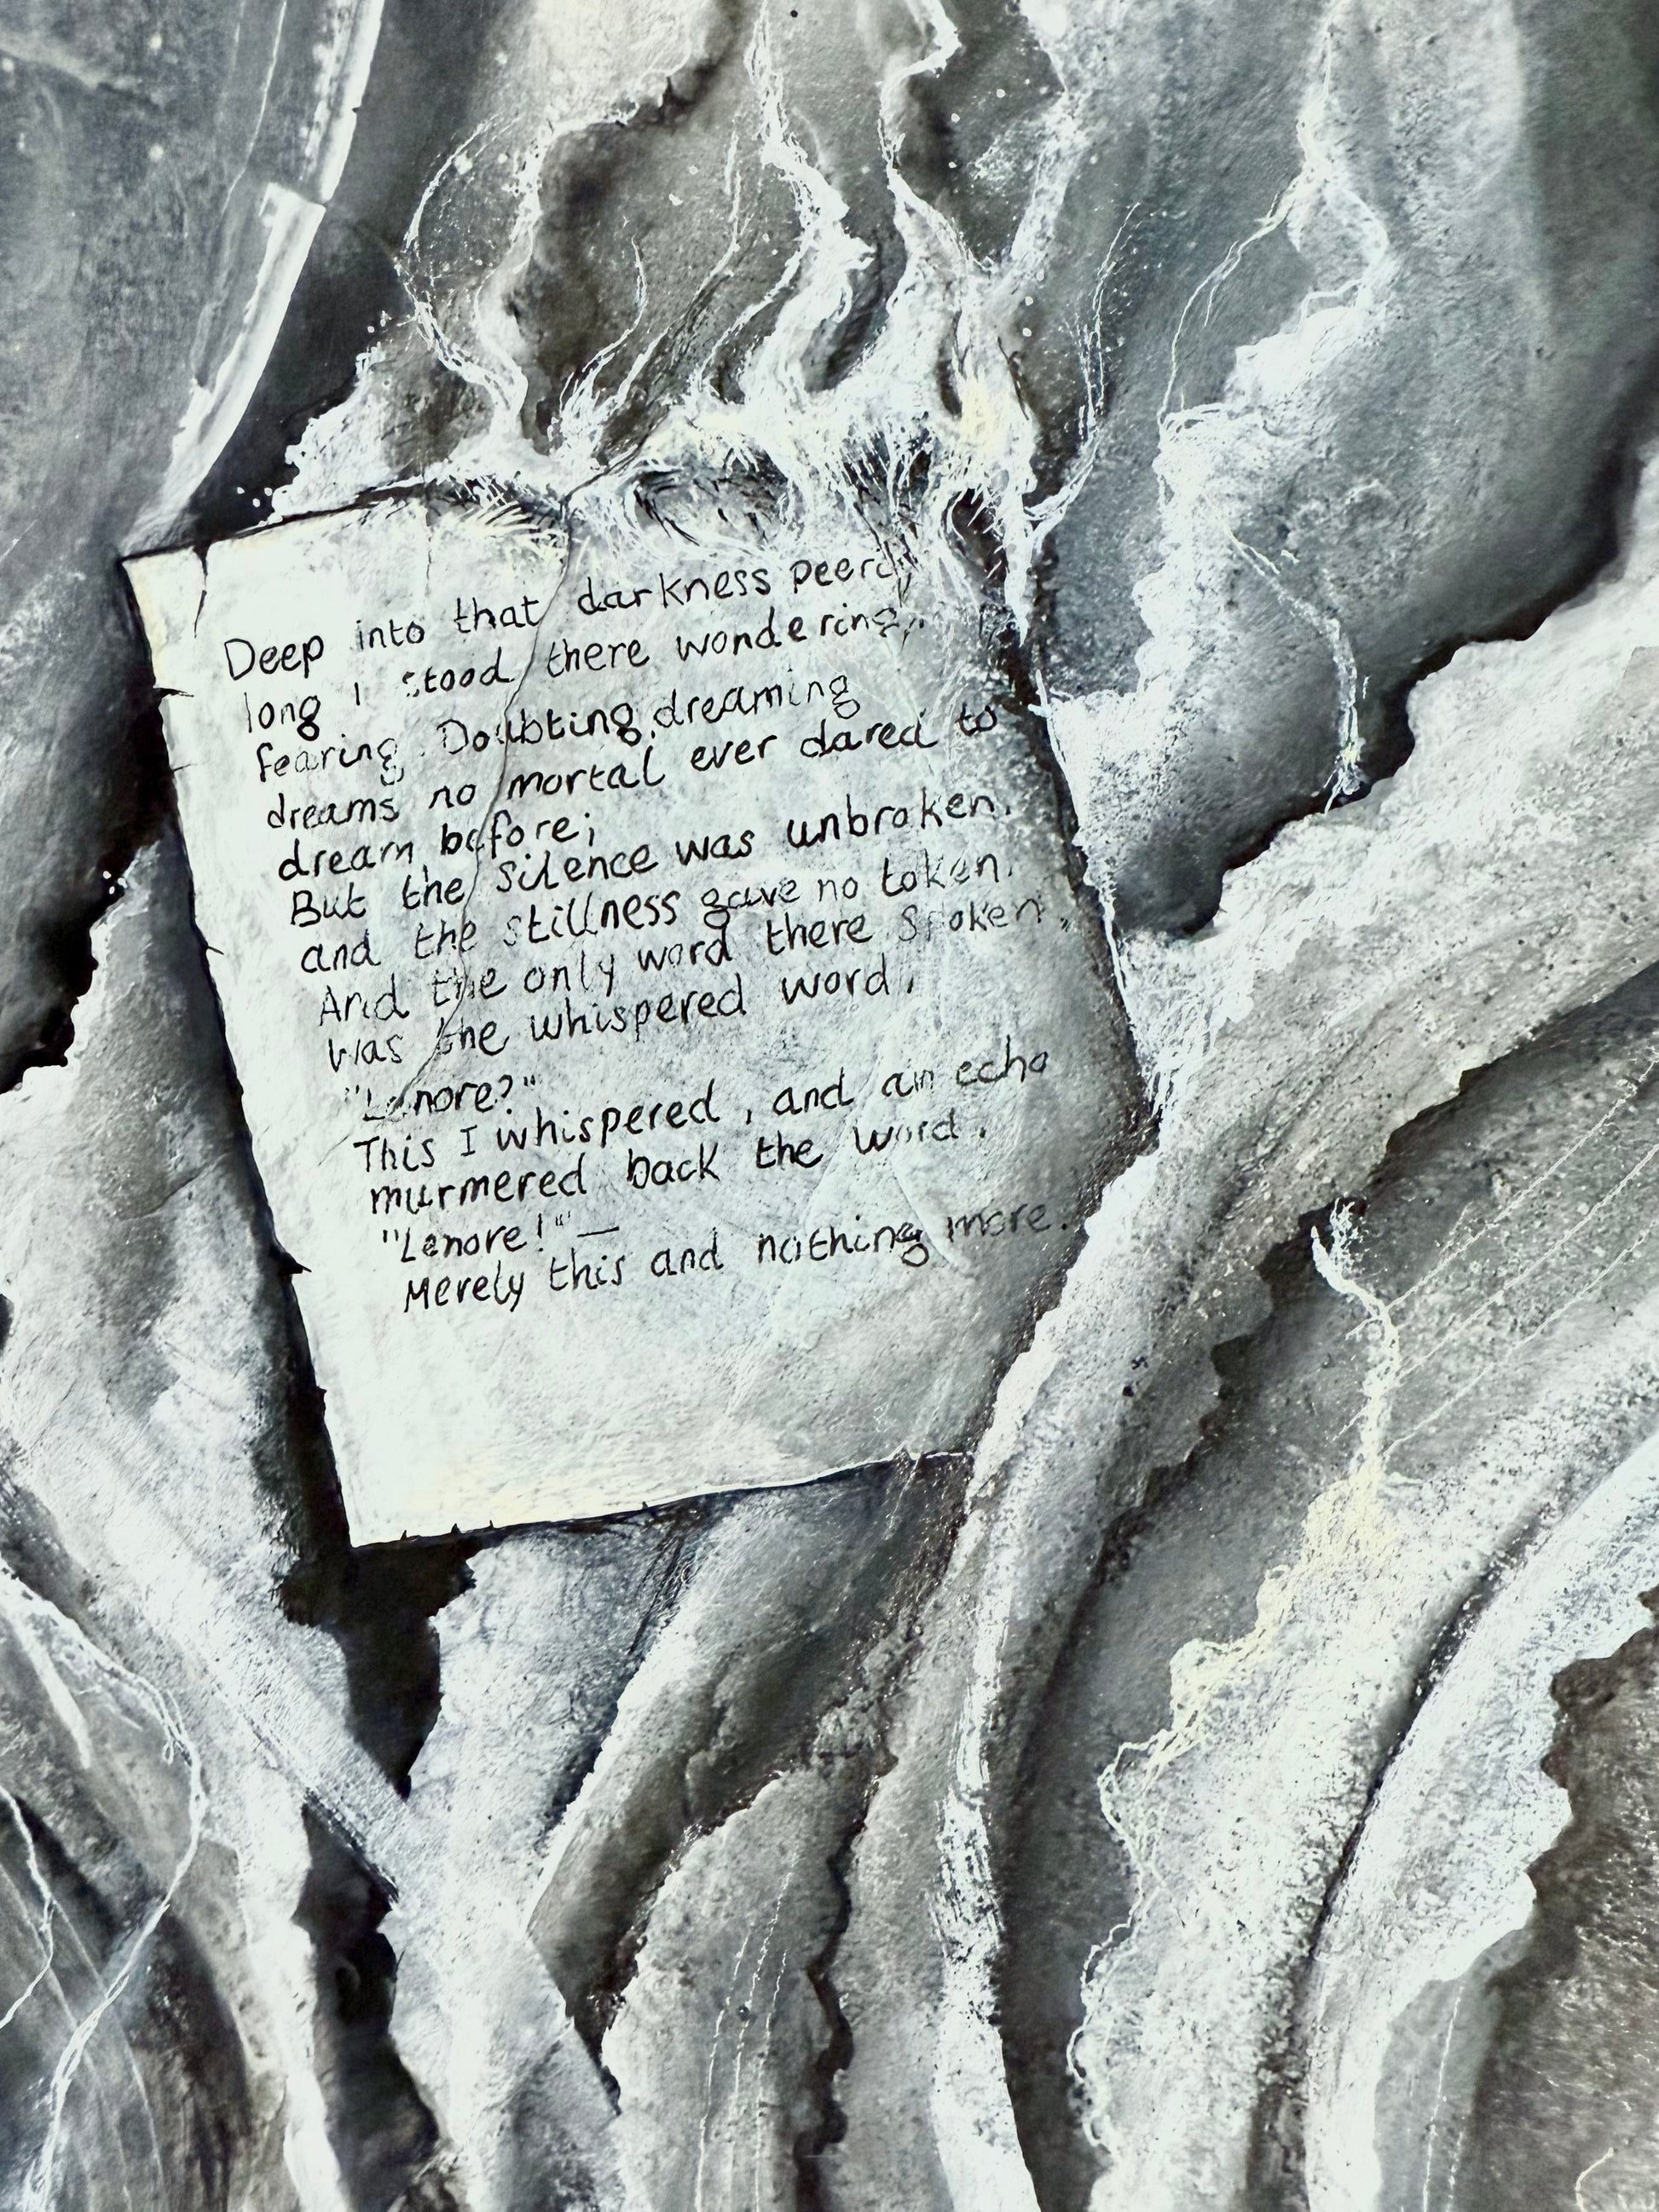 Deep into that darkness
long I stood there wondering,
fearing, Doubting, dreaming
dreams no mortal ever dared to
dream before;
But the Silence was unbroken,
and the stillness gave no token.
And the only word there Spoken,
was the whispered word,
"Lenore?"
This I whispered, and an echo
murmered back the word.
"Lenore!" —
Merely this and nothing more.